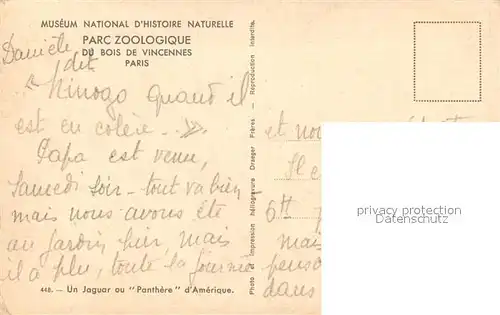 MUSÉUM NATIONAL D'HISTOIRE NATURELLE
PARC ZOOLOGIQUE
DU BOIS DE VINCENNES
PARIS
Danièle dit
" Ninogo quand il
est en colère - »
Papa est venu,
Samedi soir - tout va bien
mais nous avons été
au jardin hier, mais
il a plu, toute la journée
448. - Un Jaguar ou "Panthère" d'Amérique.
Photo et Impression héliogravure Draeger Frères - Reproduction Interdite.
et nou
Il e
6H
mais
pense
dans
privacy protection